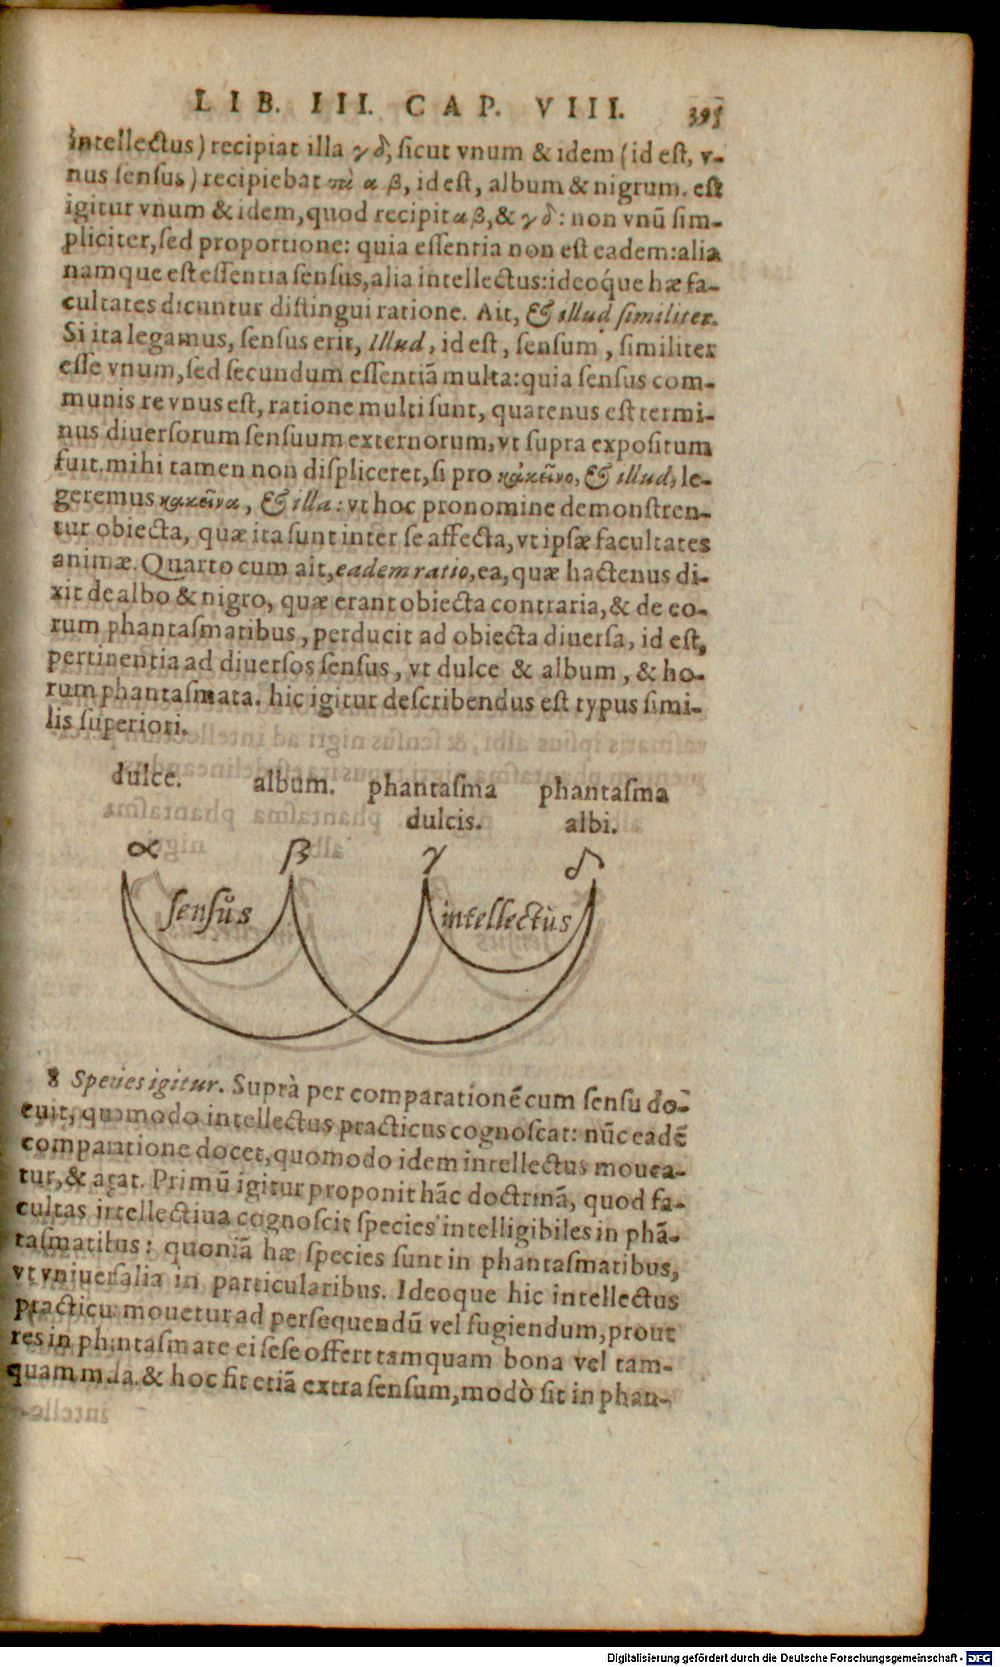 LIB. III. CAP. VIII. 395
intellectus) recipiat illa γ δ, ſicut vnum & idem (id eſt, v-
nus ſenſus) recipiebat τὰ α β, id eſt, album & nigrum. eſt
igitur vnum & idem, quod recipit α β, & γ δ: non vnũ ſim-
pliciter, ſed proportione: quia eſſentia non eſt eadem: alia
namque eſt eſſentia ſenſus, alia intellectus: ideoq́ue hæ fa-
cultates dicuntur diſtingui ratione. Ait, & illud ſimiliter.
Si ita legamus, ſenſus erit, illud, id eſt, ſenſum, ſimiliter
eſſe vnum, ſed ſecundum eſſentiã multa: quia ſenſus com-
munis re vnus eſt, ratione multi ſunt, quatenus eſt termi-
nus diuerſorum ſenſuum externorum, vt ſupra expoſitum
fuit. mihi tamen non diſpliceret, ſi pro κἀκεῖνο, & illud, le-
geremus κἀκεῖνα, & illa: vt hoc pronomine demonſtren-
tur obiecta, quæ ita ſunt inter ſe affecta, vt ipſæ facultates
animæ. Quarto cum ait, eadem ratio, ea, quæ hactenus di-
xit de albo & nigro, quæ erant obiecta contraria, & de eo-
rum phantaſmatibus, perducit ad obiecta diuerſa, id eſt,
pertinentia ad diuerſos ſenſus, vt dulce & album, & ho-
rum phantaſmata. hic igitur deſcribendus eſt typus ſimi-
lis ſuperiori.
dulce. album. phantaſma phantaſma
dulcis. albi.
α β γ δ
ſenſus intellectus
8 Species igitur. Suprà per comparationẽ cum ſenſu do-
cuit, quomodo intellectus practicus cognoſcat: nũc eadẽ
comparatione docet, quomodo idem intellectus mouea-
tur, & agat. Primũ igitur proponit hãc doctrinã, quod fa-
cultas intellectiua cognoſcit ſpecies intelligibiles in phã-
taſmatibus: quoniã hæ ſpecies ſunt in phantaſmatibus,
vt vniuerſalia in particularibus. Ideoque hic intellectus
practicus mouetur ad perſequendũ vel fugiendum, prout
res in phantaſmate ei ſeſe offert tamquam bona vel tam-
quam mala. & hoc fit etiã extra ſenſum, modò ſit in phan-
Digitalisierung gefördert durch die Deutsche Forschungsgemeinschaft - DFG